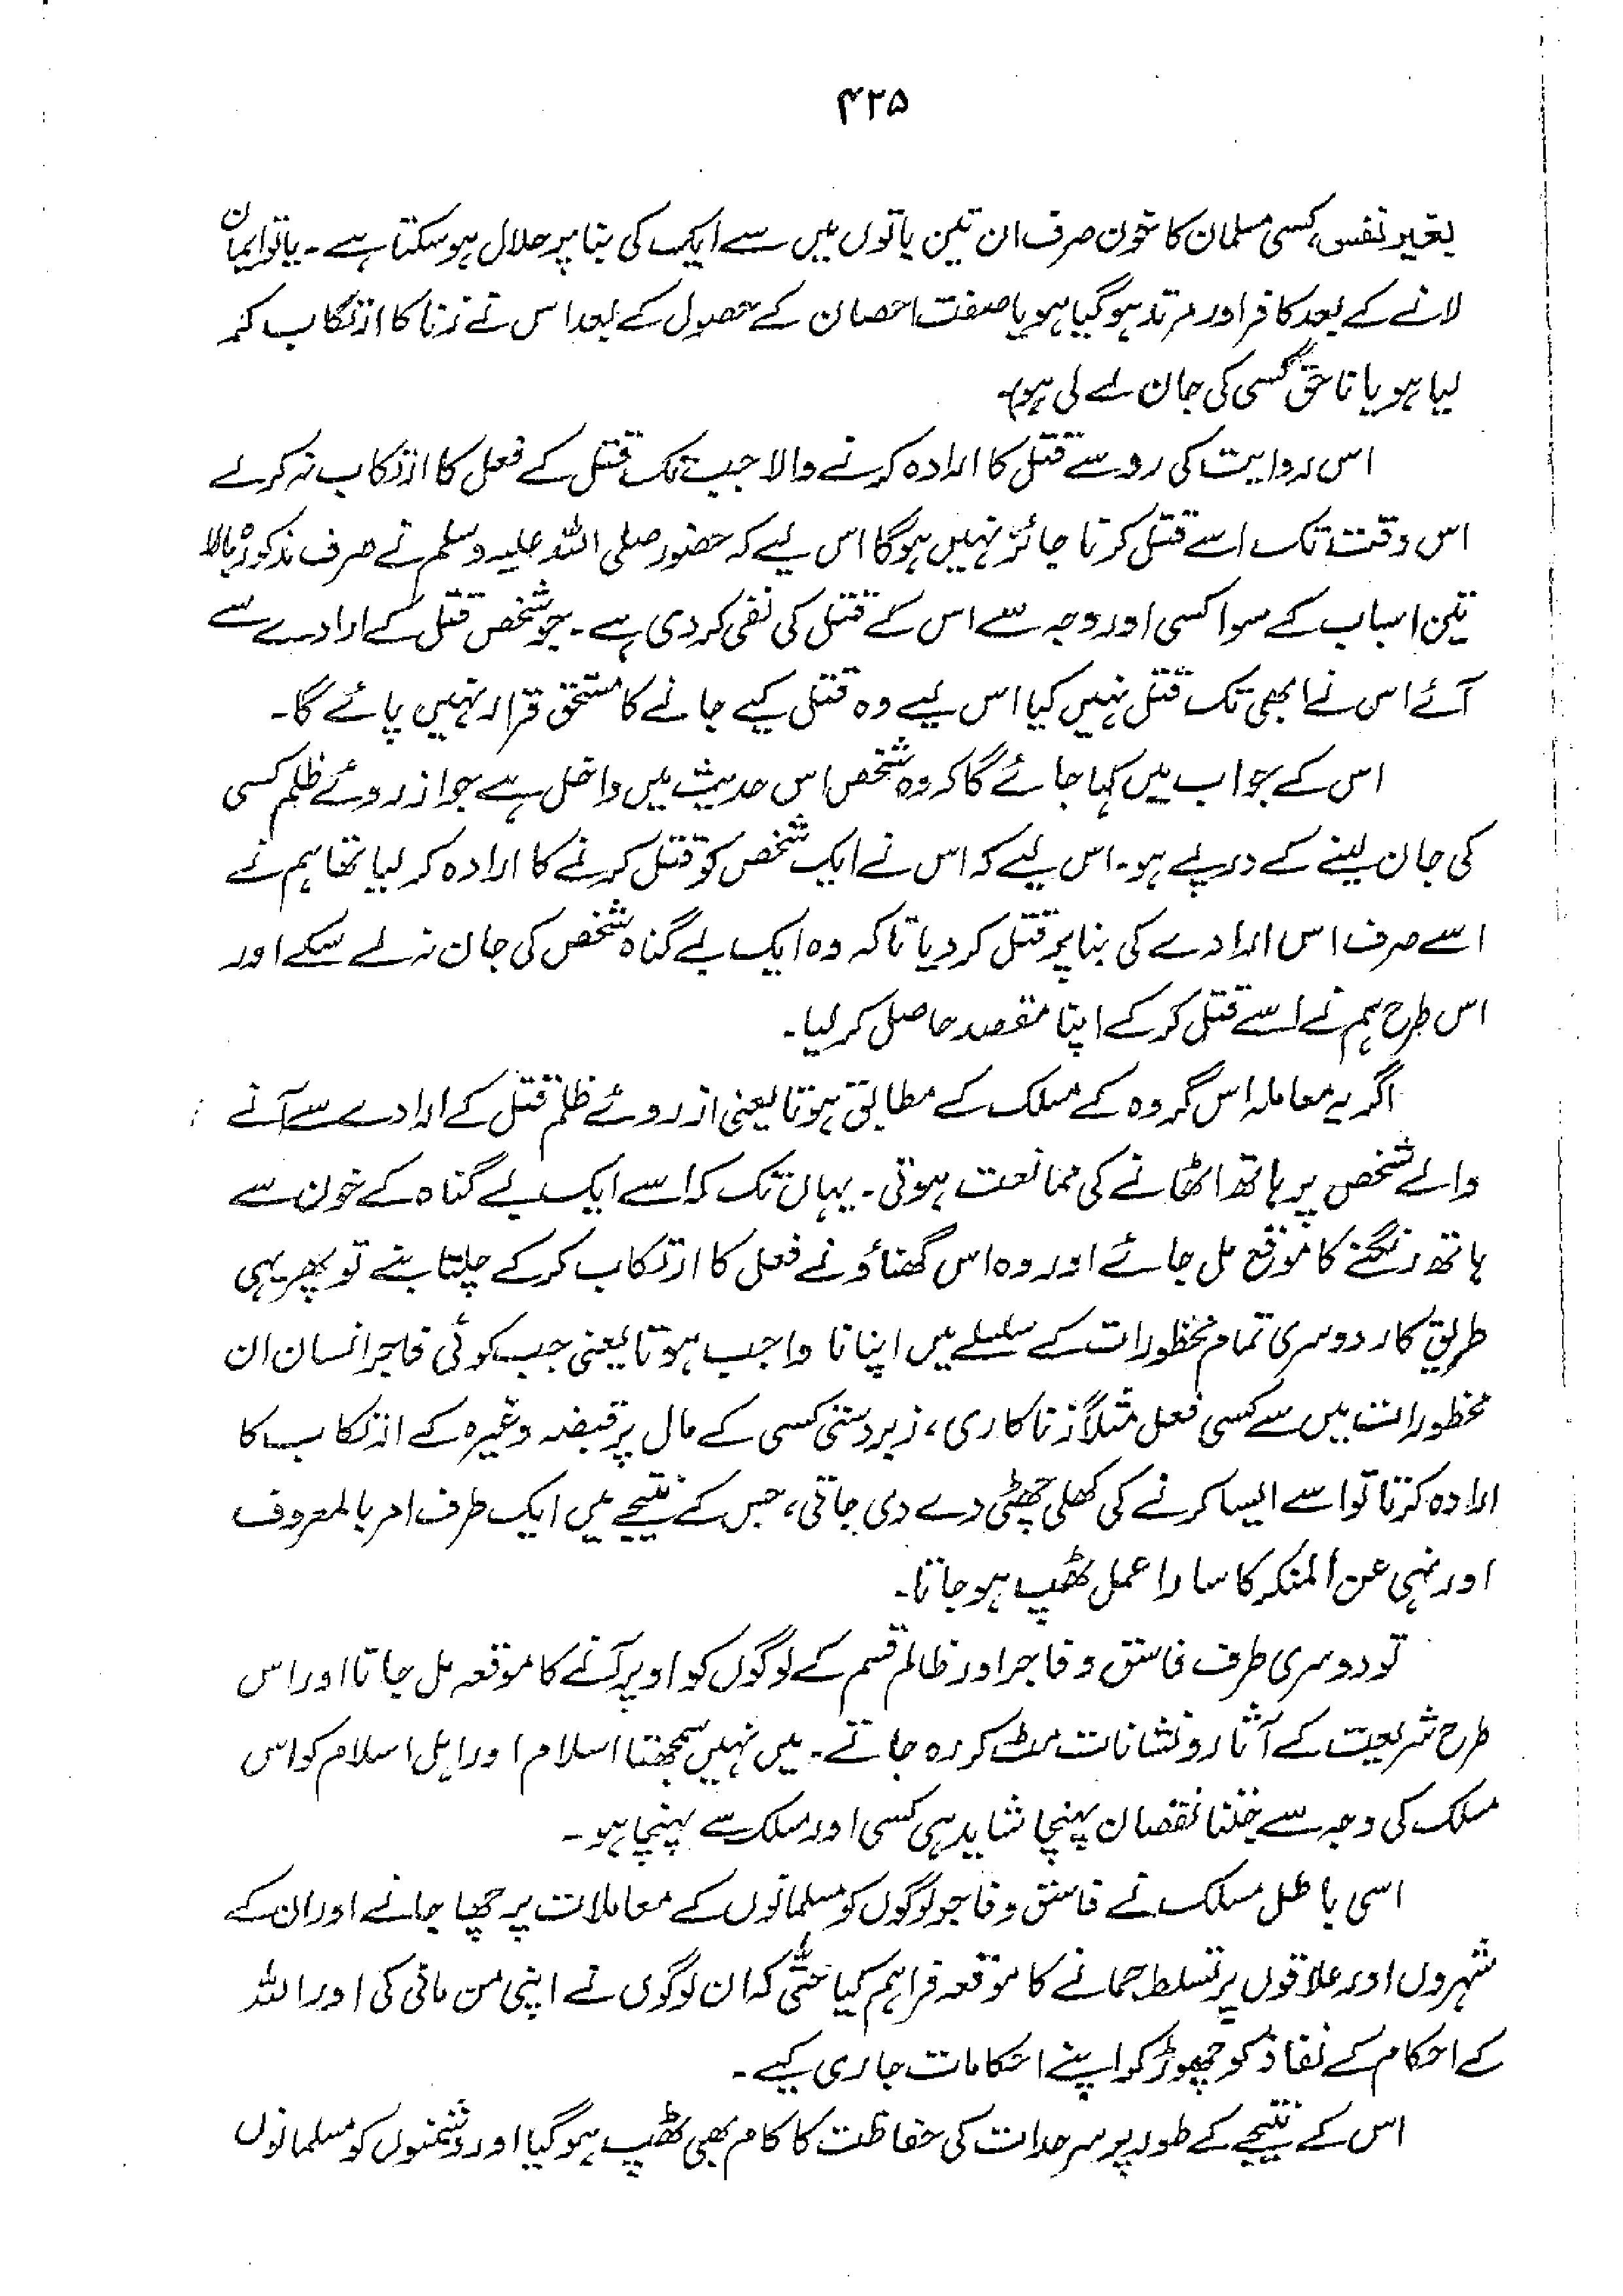 ۴۲۵
بغیر نفس، کسی مسلمان کا خون صرف ان تین باتوں میں سے ایک کی بنا پر حلال ہو سکتا ہے۔ یا تو ایمان
لانے کے بعد کافر اور مرتد ہو گیا ہو یا صفت احصان کے حصول کے بعد اس نے زنا کا ارتکاب کر
لیا ہو یا ناحق کسی کی جان لے لی ہو)۔
اس روایت کی رو سے قتل کا ارادہ کرنے والا جب تک قتل کے فعل کا ارتکاب نہ کرلے
اس وقت تک اسے قتل کرنا جائز نہیں ہوگا اس لیے کہ حضور صلی اللہ علیہ وسلم نے صرف مذکورہ بالا
تین اسباب کے سوا کسی اور وجہ سے اس کے قتل کی نفی کر دی ہے۔ جو شخص قتل کے ارادے سے
آئے اس نے ابھی تک قتل نہیں کیا اس لیے وہ قتل کیے جانے کا مستحق قرار نہیں پائے گا۔
اس کے جواب میں کہا جائے گا کہ وہ شخص اس حدیث میں داخل ہے جو ازروئے ظلم کسی
کی جان لینے کے درپے ہو۔ اس لیے کہ اس نے ایک شخص کو قتل کرنے کا ارادہ کر لیا تھا ہم نے
اسے صرف اس ارادے کی بنا پر قتل کر دیا تاکہ وہ ایک بے گناہ شخص کی جان نہ لے سکے اور
اس طرح ہم نے اسے قتل کر کے اپنا مقصد حاصل کر لیا۔
اگر یہ معاملہ اس گروہ کے مسلک کے مطابق ہوتا یعنی ازروئے ظلم قتل کے ارادے سے آنے
والے شخص پر ہاتھ اٹھانے کی ممانعت ہوتی۔ یہاں تک کہ اسے ایک بے گناہ کے خون سے
ہاتھ رنگنے کا موقع مل جائے اور وہ اس گھناؤنے فعل کا ارتکاب کر کے چلتا بنے تو پھر یہی
طریق کار دوسری تمام محظورات کے سلسلے میں اپنانا واجب ہوتا یعنی جب کوئی فاجر انسان ان
محظورات میں سے کسی فعل مثلاً زنا کاری، زبردستی کسی کے مال پر قبضہ وغیرہ کے ارتکاب کا
ارادہ کرتا تو اسے ایسا کرنے کی کھلی چھٹی دے دی جاتی، جس کے نتیجے میں ایک طرف امر بالمعروف
اور نہی عن المنکر کا سارا عمل ٹھپ ہو جاتا۔
تو دوسری طرف فاسق و فاجر اور ظالم قسم کے لوگوں کو اوپر آنے کا موقعہ مل جاتا اور اس
طرح شریعت کے آثار و نشانات مٹ کر رہ جاتے۔ میں نہیں سمجھتا اسلام اور اہل اسلام کو اس
مسلک کی وجہ سے جتنا نقصان پہنچا شاید ہی کسی اور مسلک سے پہنچا ہو۔
اسی باطل مسلک نے فاسق و فاجر لوگوں کو مسلمانوں کے معاملات پر چھا جانے اور ان کے
شہروں اور علاقوں پر تسلط جمانے کا موقعہ فراہم کیا حتیٰ کہ ان لوگوں نے اپنی من مانی کی اور اللہ
کے احکام کے نفاذ کو چھوڑ کر اپنے احکامات جاری کیے۔
اس کے نتیجے کے طور پر سرحدات کی حفاظت کا کام بھی ٹھپ ہو گیا اور دشمنوں کو مسلمانوں